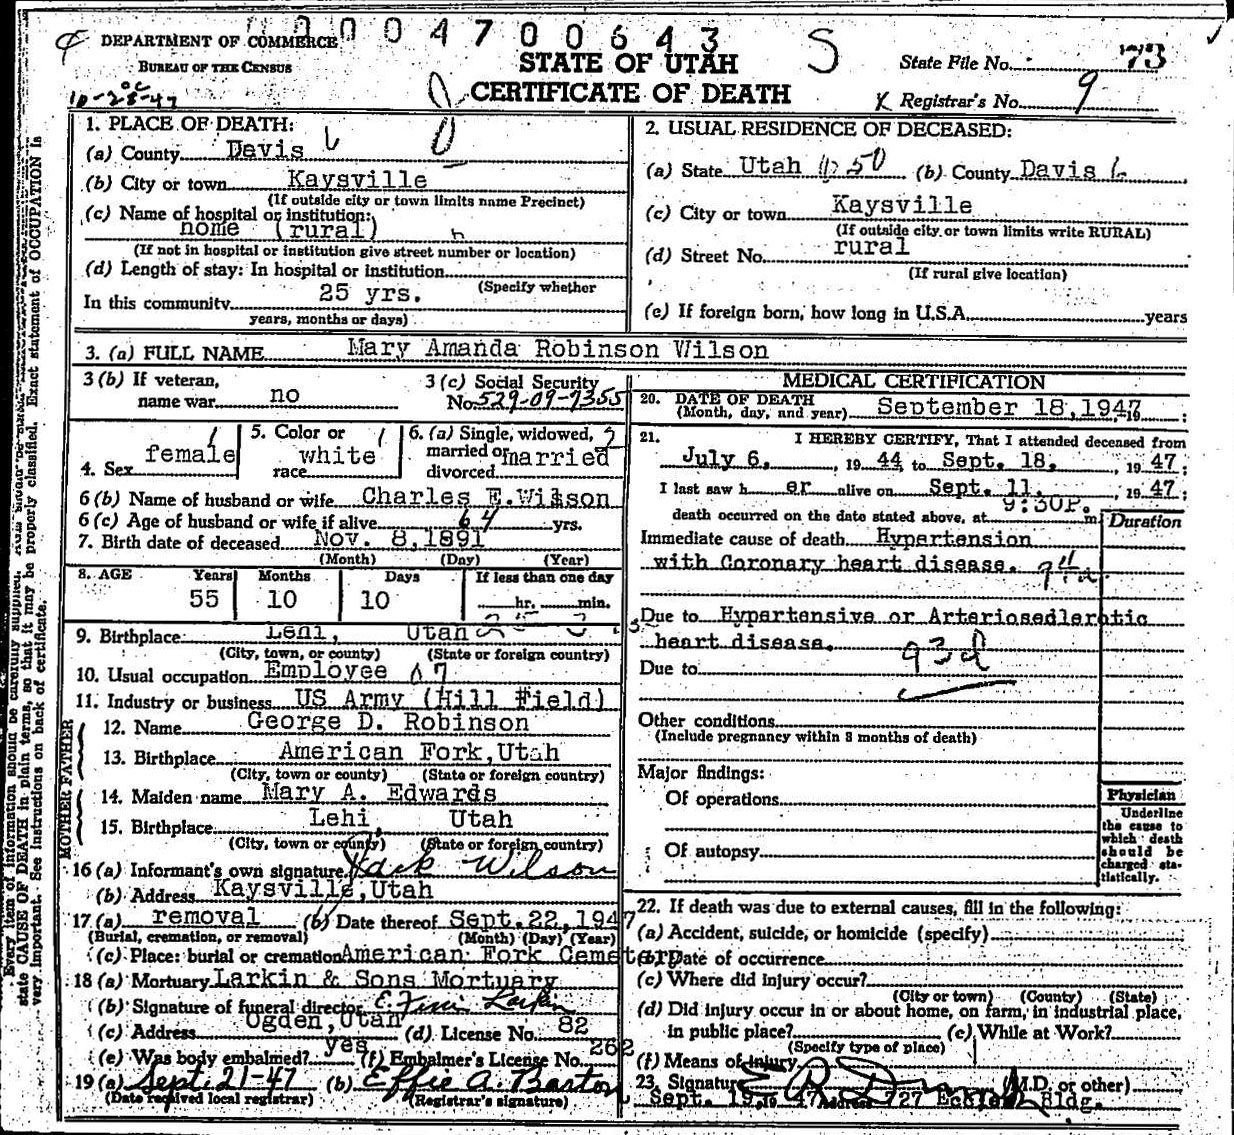 004700643
DEPARTMENT OF COMMERCE
BUREAU OF THE CENSUS
STATE OF UTAH
CERTIFICATE OF DEATH
S
State File No. 73
Registrar's No. 9
10-28-47
1. PLACE OF DEATH:
(a) County Davis
(b) City or town Kaysville
(If outside city or town limits name Precinct)
(c) Name of hospital or institution:
home (rural)
(If not in hospital or institution give street number or location)
(d) Length of stay: In hospital or institution
(Specify whether
In this community 25 yrs.
years, months or days)
2. USUAL RESIDENCE OF DECEASED:
(a) State Utah (b) County Davis
(c) City or town Kaysville
(If outside city or town limits write RURAL)
(d) Street No. rural
(If rural give location)
(e) If foreign born, how long in U.S.A. years
3. (a) FULL NAME Mary Amanda Robinson Wilson
3 (b) If veteran, name war no
3 (c) Social Security No. 529-09-7355
4. Sex female
5. Color or race white
6. (a) Single, widowed, married or divorced married
6 (b) Name of husband or wife Charles E. Wilson
6 (c) Age of husband or wife if alive 64 yrs.
7. Birth date of deceased Nov. 8, 1891
(Month) (Day) (Year)
8. AGE Years Months Days If less than one day
55 10 10 hr. min.
9. Birthplace Lehi, Utah
(City, town, or county) (State or foreign country)
10. Usual occupation Employee
11. Industry or business US Army (Hill Field)
FATHER
12. Name George D. Robinson
13. Birthplace American Fork, Utah
(City, town or county) (State or foreign country)
MOTHER
14. Maiden name Mary A. Edwards
15. Birthplace Lehi, Utah
(City, town or county) (State or foreign country)
16 (a) Informant's own signature Jack Wilson
(b) Address Kaysville, Utah
17 (a) removal (b) Date thereof Sept. 22, 1947
(Burial, cremation, or removal) (Month) (Day) (Year)
(c) Place: burial or cremation American Fork Cemetery
18 (a) Mortuary Larkin & Sons Mortuary
(b) Signature of funeral director Larkin
(c) Address Ogden, Utah (d) License No. 82
(e) Was body embalmed? yes (f) Embalmer's License No. 262
19 (a) Sept. 21-47 (b) Effie A. Barton
(Date received local registrar) (Registrar's signature)
MEDICAL CERTIFICATION
20. DATE OF DEATH
(Month, day, and year) September 18, 1947
21. I HEREBY CERTIFY, That I attended deceased from
July 6, 1944, to Sept. 18, 1947;
I last saw her alive on Sept. 11, 1947;
death occurred on the date stated above, at 9:30P. m.
Duration
Immediate cause of death Hypertension
with Coronary heart disease.
Due to Hypertensive or Arteriosedlerotic
heart disease. 93d
Due to
Other conditions
(Include pregnancy within 3 months of death)
Major findings:
Of operations
Of autopsy
Physician
Underline the cause to which death should be charged statistically.
22. If death was due to external causes, fill in the following:
(a) Accident, suicide, or homicide (specify)
(b) Date of occurrence
(c) Where did injury occur?
(City or town) (County) (State)
(d) Did injury occur in or about home, on farm, in industrial place,
in public place? (e) While at Work?
(Specify type of place)
(f) Means of injury
23. Signature (M.D. or other)
Sept. 19, 19 47 Address 727 Eccles Bldg.
Every item of information should be carefully supplied. state CAUSE OF DEATH in plain terms, so that it may be properly classified. Exact statement of OCCUPATION is very important. See instructions on back of certificate.